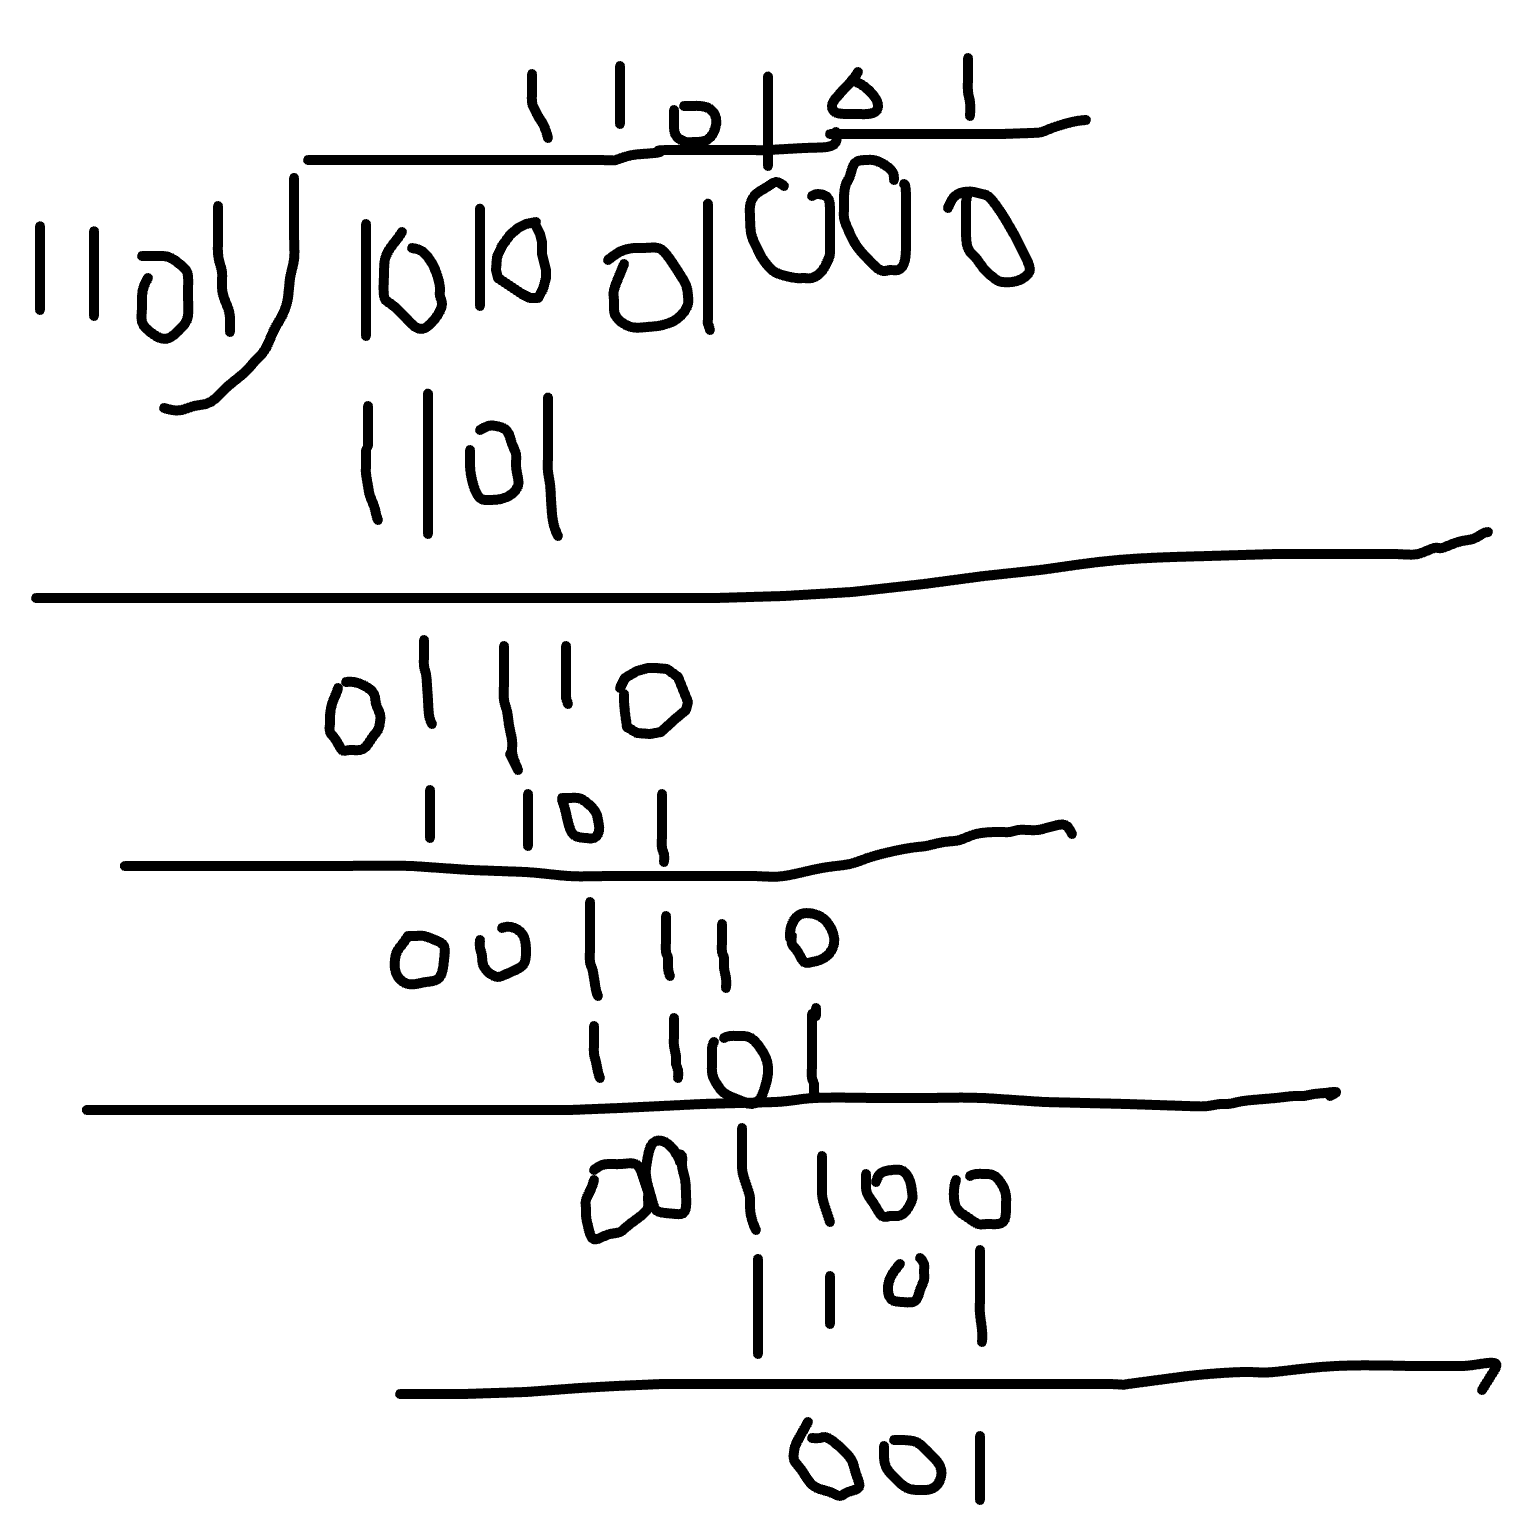 110101
1101)101001000
1101
01110
1101
001110
1101
001100
1101
001